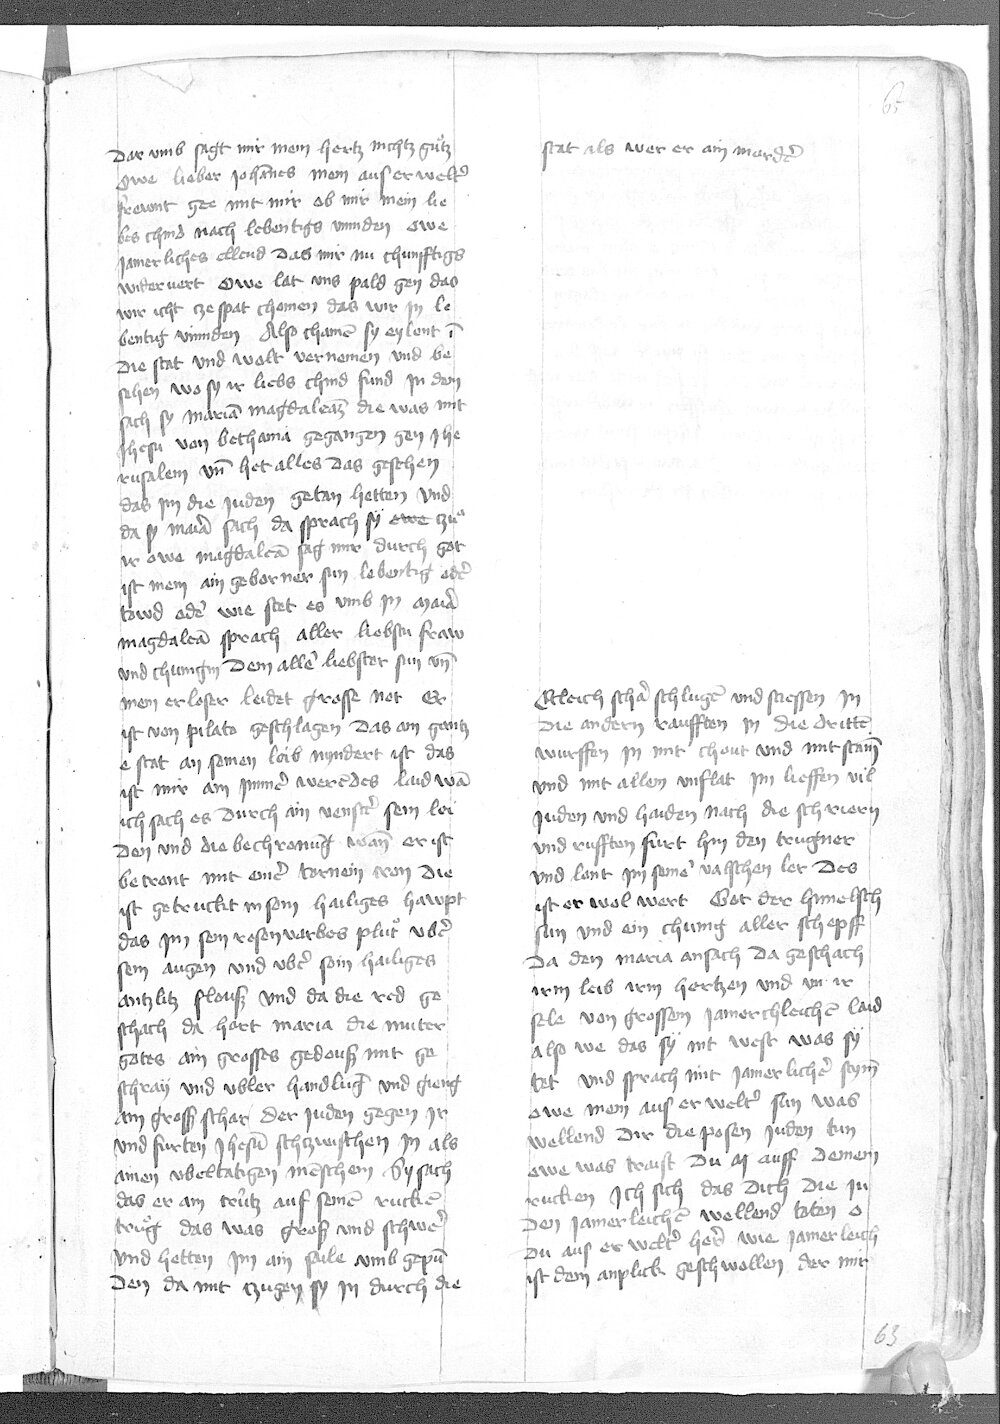 65
Dar vmb sagt mir mein hertz nichtz gůtz
Owe lieber Johānes mein auserwelt᷑
frewnt gee mit mir ob mir mein lie
bes chind nach lebentigs vinnden owe
Jamerliches ellend Das mir nu chunfftigs
widervert Owe lat vns pald gen das
wir icht cze spat chomen das wir in le
bentig vinnden Also chamē sy eylent ī
die stat vnd wolt vernemen vnd be
sehen wo sy ir liebs chind fund In dem
sach sy mariā magdaleā die was mit
Jhesu von bethania gegangen gen Jhe
rusalem vn̄ het alles das gesehen
das im die Juden getan hetten Vnd
da sy mariā sach da sprach sÿ owe czů
ir owe magdaleā sag mir durch got
ist mein ain geborner sun lebentig od᷑
towd od᷑ wie stet es vmb in Mariā
magdaleā sprach aller liebstu fraw
vnd chunigin Dein all᷑ liebster sun vn̄
mein erloser leidet grosse not Er
ist von pilato geschlagen Das ain gantz
e stat an seinen leib nyndert ist das
ist mir ain ymm᷑ werēdes laid wā
ich sach es durch ain venst᷑ sein lei
den vnd die bechronūg wān er ist
bekront mit ein᷑ dornein cron Die
ist getruckt in sein hailiges hawpt
das im sein rosenvarbes plůt vb᷑
sein augen vnd vb᷑ sein hailiges
antzlitz flewsß vnd da die red ge
schach da hort maria die muter
gotes ain grosses gedowß mit ge
schraÿ vnd vbler handlūg vnd gieng
ain grosß schar der Juden gegen ir
vnd furten Jhesū schczwischen in als
ainen vbeltatigen menschein Sy sach
das er ain krůtz auf seinē ruckē
trůg das was groß vnd schwer᷑
vnd hetten im ain saile vmb gepū
Den da mit czugen sy in durch die
stat als wer er ain mord᷑
Etleich schar schlugē vnd stiessen in
Die andern raufften in die drittē
wurffen in mit chott vnd mit stain̄
vnd mit allem vnflat Im lieffen vil
Juden vnd haiden nach die schriern
vnd rufften furt hin den trugner
vnd lont im sein᷑ valschen ler Des
ist er wol wert Got der himelisch
sun vnd ein chunig aller schepff
Da den maria ansach Da geschach
irm leib irm hertzen vnd in ir
sele von grossem Jamerchleichē laid
also we das sÿ nit west was sÿ
tet vnd sprach mit Jamerlich᷑ stym̄
owe mein auserwelt᷑ sun was
wellend Dir die posen Juden tun
owe was traist Du auff Deinem
rucken Ich sich das Dich Die Ju
den Jamerleichē wellend toten o
du auserwelt᷑ her᷑ wie Jamerleich
ist dein anplick geschwollen der mir
63